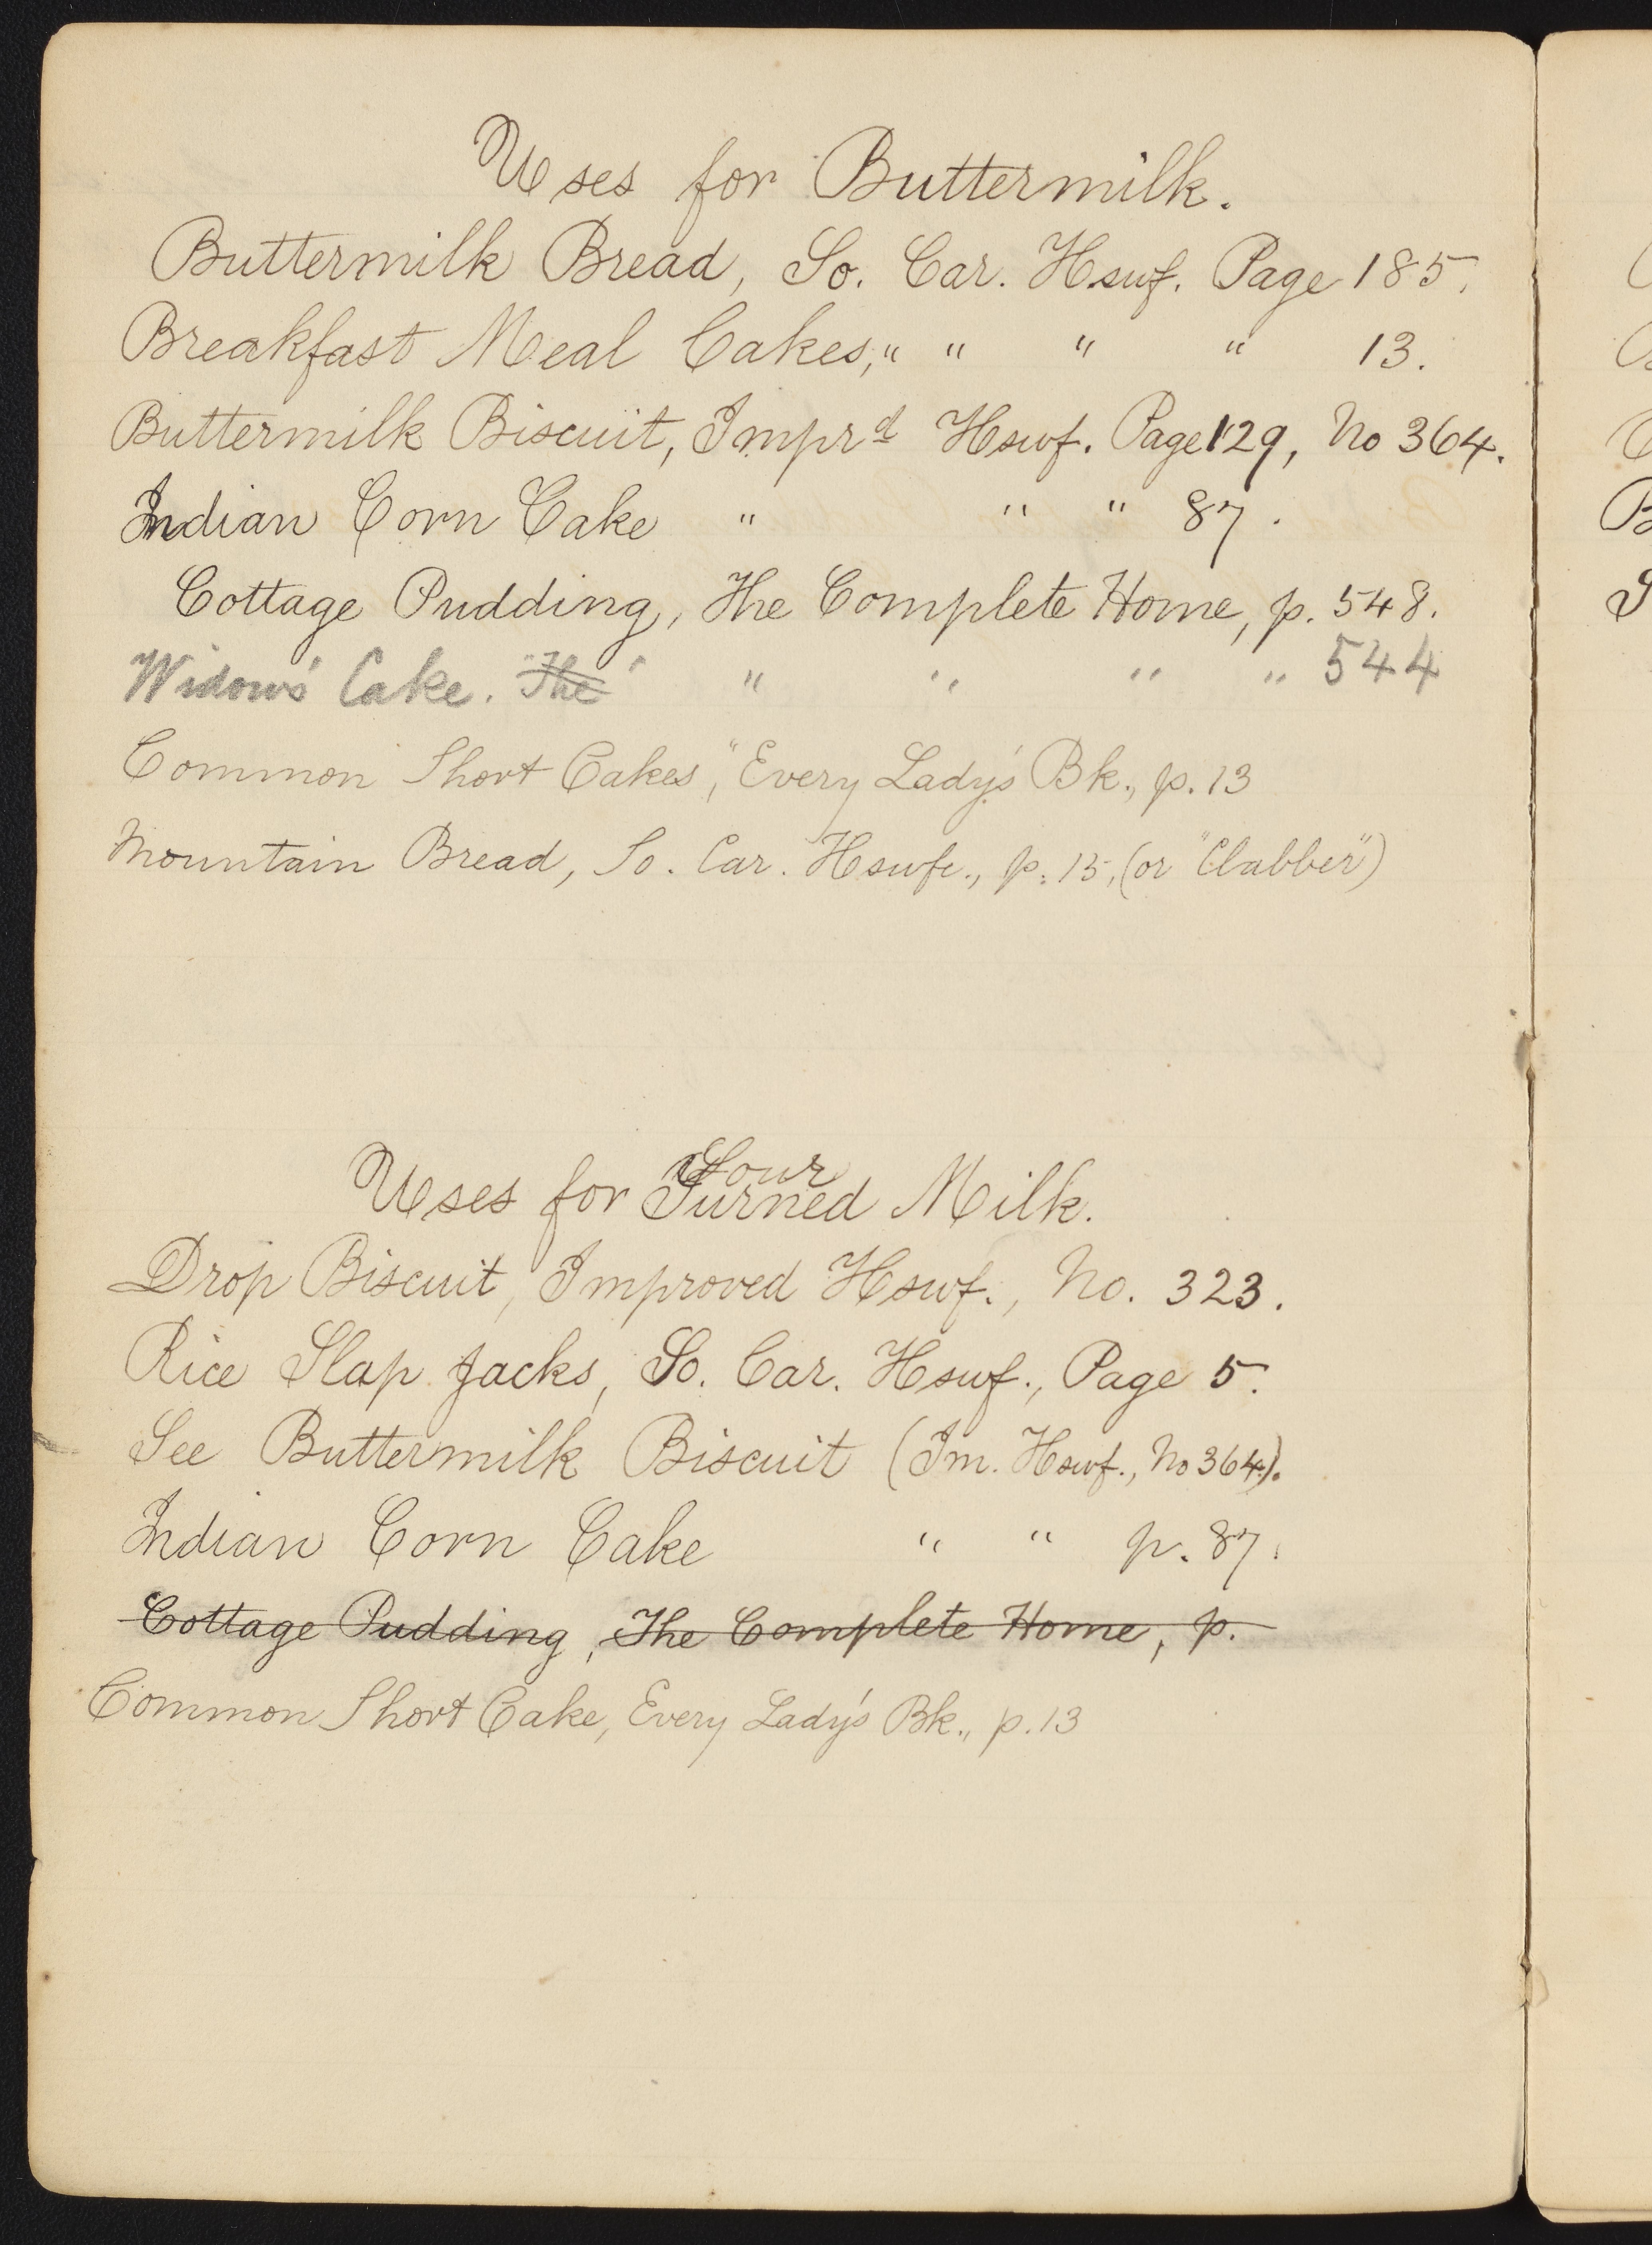 Uses for Buttermilk.
Buttermilk Bread, So. Car. Hswf. Page 185.
Breakfast Meal Cakes, " " " " 13.
Buttermilk Biscuit, Imprd Hswf. Page 129, No 364.
Indian Corn Cake " " " 87.
Cottage Pudding, The Complete Home, p. 548.
Widow's Cake. "The" " " " " 544
Common Short Cakes, "Every Lady's Bk., p. 13
Mountain Bread, So. Car. Hswfe., p. 15, (or "Clabber")
Sour
Uses for Turned Milk.
Drop Biscuit, Improved Hswf., No. 323.
Rice Slap Jacks, So. Car. Hswf., Page 5.
See Buttermilk Biscuit (Im. Hswf., No 364.).
Indian Corn Cake " " p. 87.
Cottage Pudding, The Complete Home, p.
Common Short Cake, Every Lady's Bk., p. 13